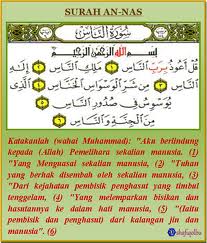 SURAH AN-NAS
سُورَةُ النَّاسِ
بِسْمِ اللَّهِ الرَّحْمَٰنِ الرَّحِيمِ
قُلْ أَعُوذُ بِرَبِّ النَّاسِ ١ مَلِكِ النَّاسِ ٢ إِلَٰهِ
النَّاسِ ٣ مِن شَرِّ الْوَسْوَاسِ الْخَنَّاسِ ٤ الَّذِي
يُوَسْوِسُ فِي صُدُورِ النَّاسِ ٥
مِنَ الْجِنَّةِ وَالنَّاسِ ٦
Katakanlah (wahai Muhammad): "Aku berlindung
kepada (Allah) Pemelihara sekalian manusia. (1)
"Yang Menguasai sekalian manusia, (2) "Tuhan
yang berhak disembah oleh sekalian manusia, (3)
"Dari kejahatan pembisik penghasut yang timbul
tenggelam, (4) "Yang melemparkan bisikan dan
hasutannya ke dalam hati manusia, (5) "(Iaitu
pembisik dan penghasut) dari kalangan jin dan
manusia". (6)
shafiqolbu